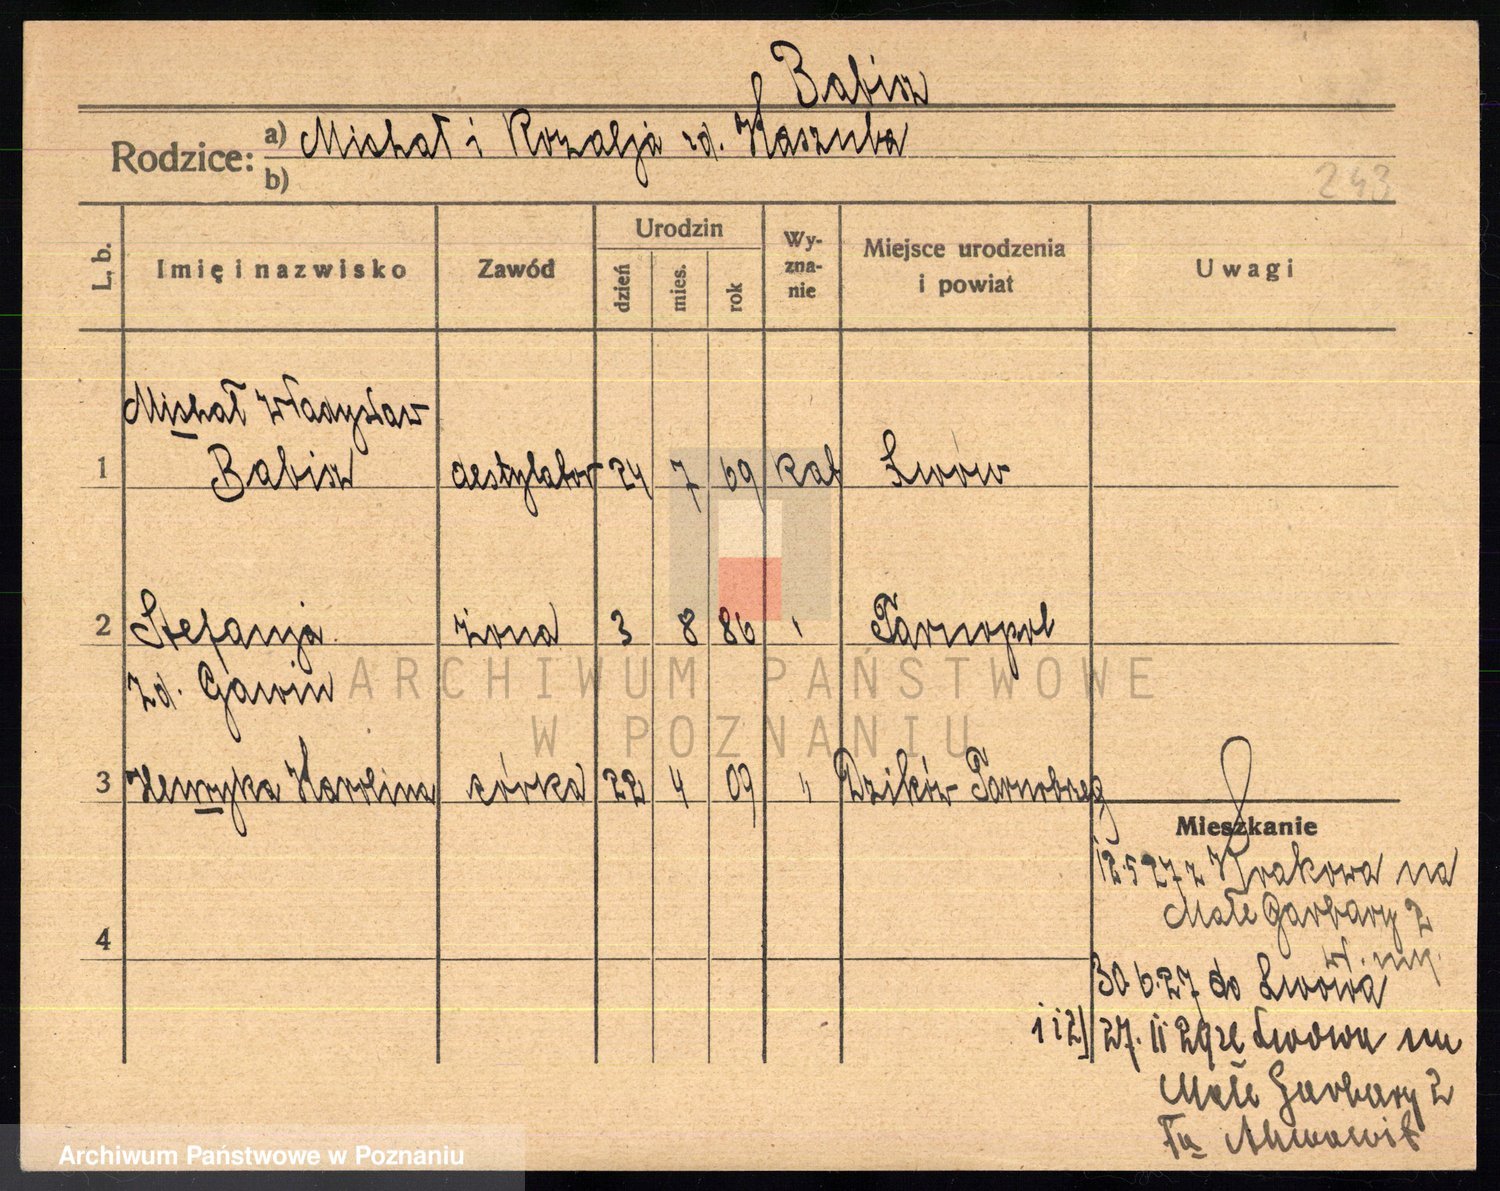 Babisz
Rodzice: a) Michał i Rozalja zd. Kaszuba
b)
243
L. b.
Imię i nazwisko
Zawód
Urodzin
dzień
mies.
rok
Wy-
zna-
nie
Miejsce urodzenia
i powiat
Uwagi
Michał Władysław
1 Babisz destylator 24 7 69 kat Lwów
2 Stefanja żona 3 8 86 " Tarnopol
zd. Gawin
3 Henryka Karolina córka 22 4 09 " Dzików Tarnobrzeg
Mieszkanie
12.5 27 z Krakowa na
Małe Garbary 2
4
30.6.27 do Lwowa
1 i 2) 27. 11 29 ze Lwowa na
Małe Garbary 2
ARCHIWUM PAŃSTWOWE
W POZNANIU
Archiwum Państwowe w Poznaniu